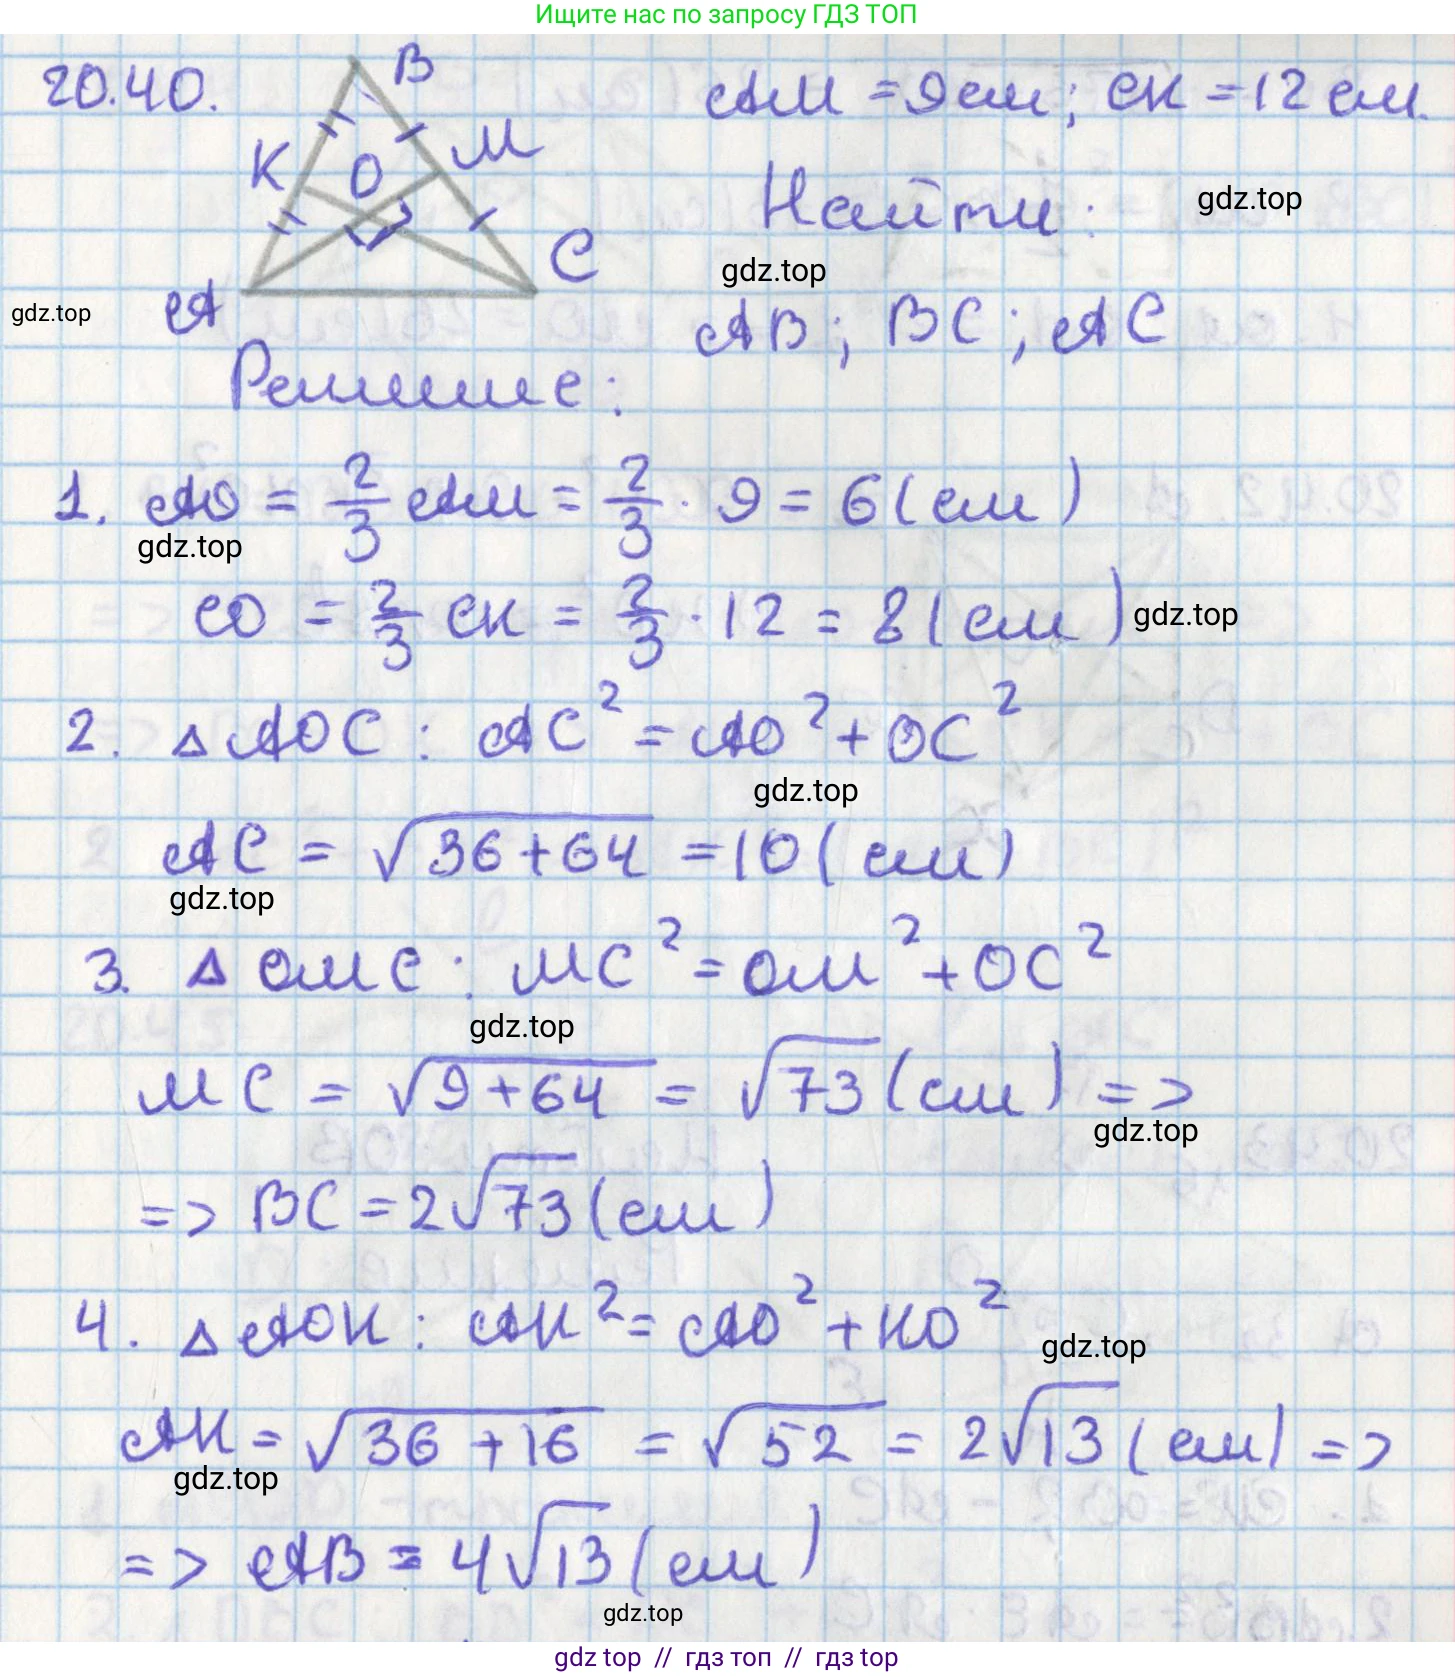 Ищите нас по запросу ГДЗ ТОП
20.40.
B
K
O
M
A
C
AM = 9 см; CK = 12 см.
Найти:
gdz.top
gdz.top
gdz.top
AB; BC; AC
Решение:
1. AO = 2/3 AM = 2/3 · 9 = 6 (см)
gdz.top
CO = 2/3 CK = 2/3 · 12 = 8 (см)
gdz.top
2. △ AOC: AC² = AO² + OC²
gdz.top
AC = √36+64 = 10 (см)
gdz.top
3. △ OMC: MC² = OM² + OC²
gdz.top
MC = √9+64 = √73 (см) =>
gdz.top
=> BC = 2√73 (см)
4. △ AOK: AK² = AO² + KO²
gdz.top
AK = √36+16 = √52 = 2√13 (см) =>
gdz.top
=> AB = 4√13 (см)
gdz.top
gdz top // гдз топ // gdz top